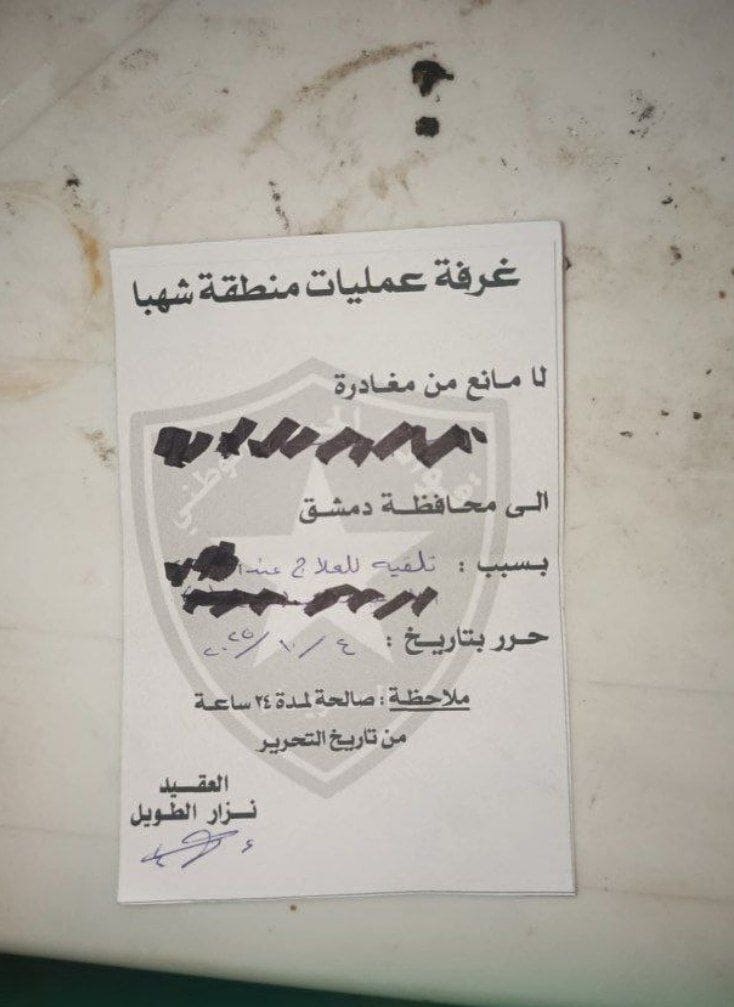 غرفة عمليات منطقة شهبا
لا مانع من مغادرة
الى محافظة دمشق
بسبب : تلقيه للعلاج عند
حرر بتاريخ : ٤ / ١٠ / ٢٠٢٥
ملاحظة : صالحة لمدة ٢٤ ساعة
من تاريخ التحرير
العقيد
نزار الطويل